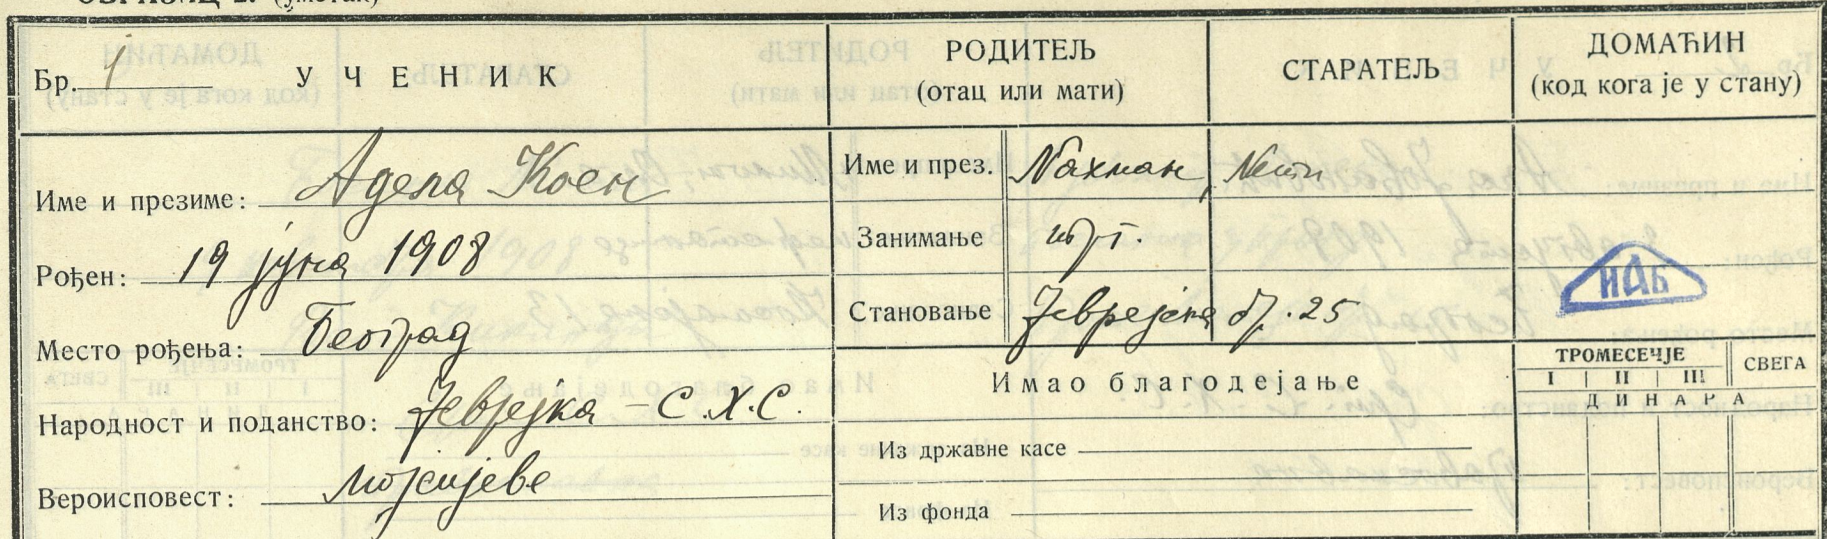 Бр. 1 УЧЕНИК
РОДИТЕЉ
(отац или мати)
СТАРАТЕЉ
ДОМАЋИН
(код кога је у стану)
Име и презиме: Адела Коен
Рођен: 19 јуна 1908
Место рођења: Београд
Народност и поданство: Јеврејка – С.Х.С.
Вероисповест: Мојсијеве
Име и през. Нахман, Нети
Занимање трг.
Становање Јеврејска бр. 25
Имао благодејање
Из државне касе
Из фонда
ИАБ
ТРОМЕСЕЧЈЕ СВЕГА
I II III
ДИНАРА